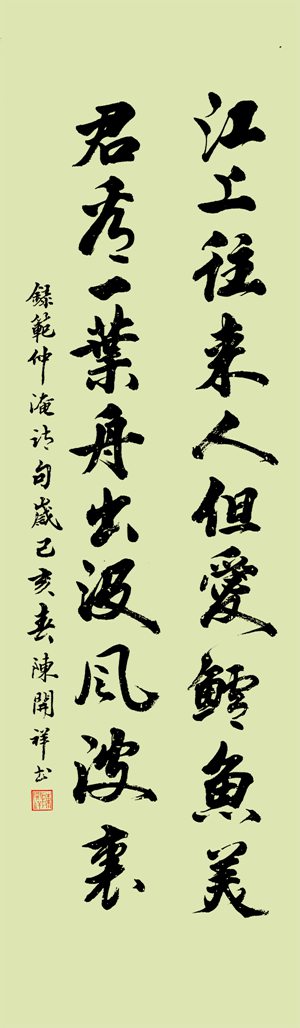 江上往来人但愛鱸魚美
君看一葉舟出没風波裏
録範仲淹詩句歲己亥春陳開祥书